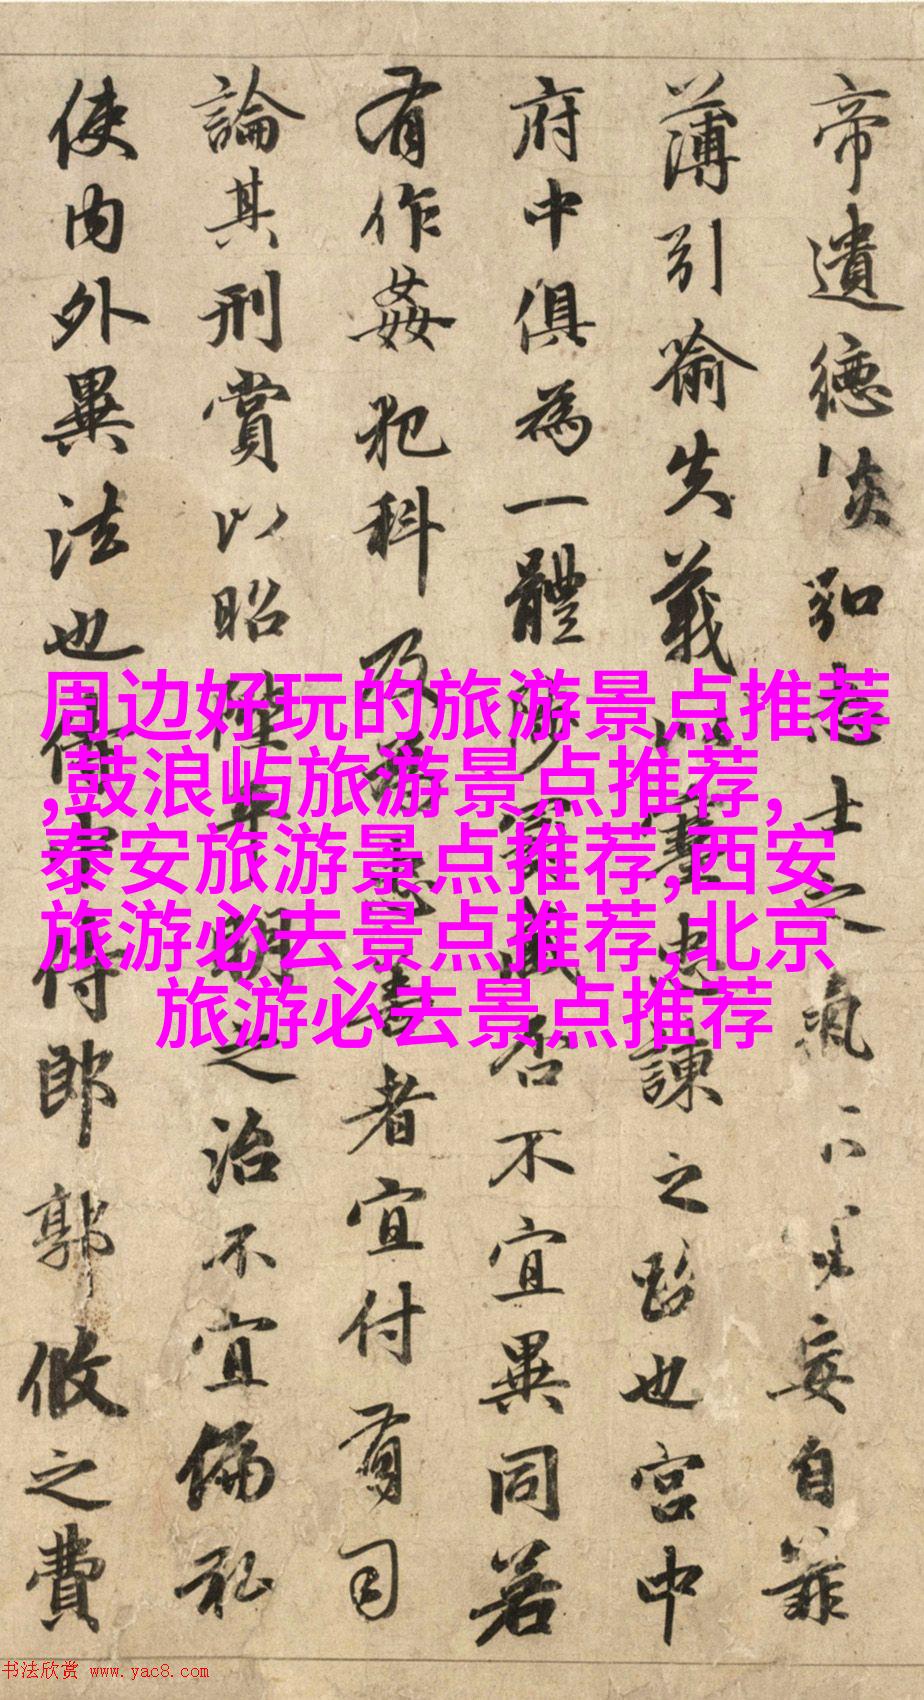 帝遺德恢弘志士之氣不妄自菲
薄引喻失義以塞忠諫之路也宮中
府中俱為一體陟罰臧否不宜異同若
有作姦犯科及為忠善者宜付有司
論其刑賞以昭陛平明之治不宜偏私
使內外異法也侍中侍郎郭攸之費
周边好玩的旅游景点推荐
,鼓浪屿旅游景点推荐,
泰安旅游景点推荐,西安
旅游必去景点推荐,北京
旅游必去景点推荐
书法欣赏 www.yac8.com